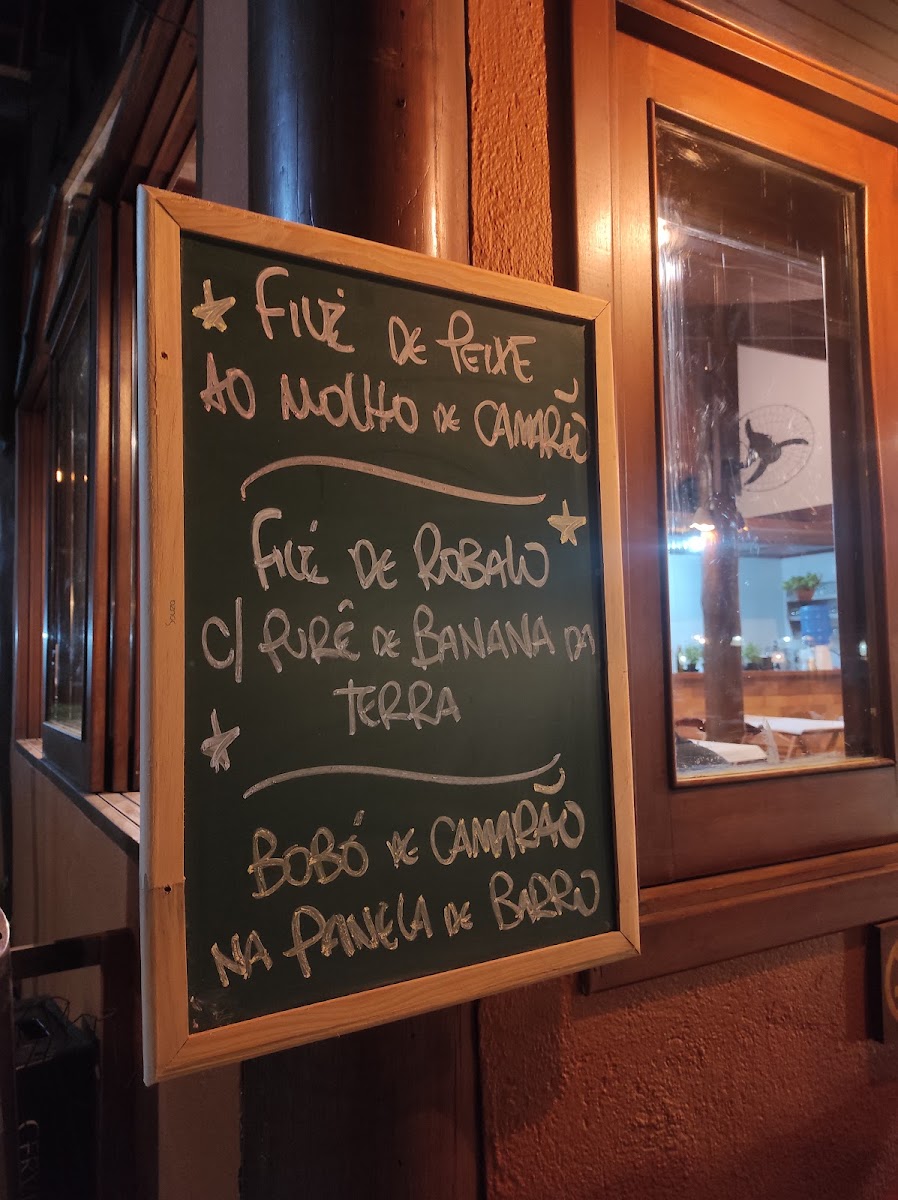 FILÉ DE PEIXE
AO MOLHO DE CAMARÃO
FILÉ DE ROBALO
C/ PURÊ DE BANANA DA
TERRA
BOBÓ DE CAMARÃO
NA PANELA DE BARRO